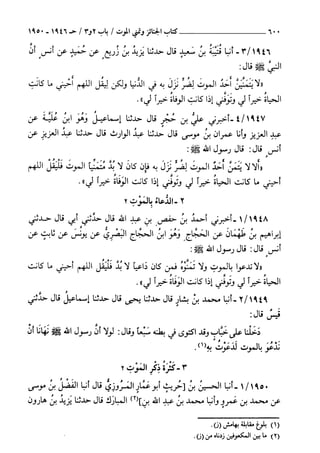 ٦٠٠ كتاب الجنائز وتمني الموت / باب ٢ و٣ / حـ ١٩٤٦ - ١٩٥٠
٣/١٩٤٦ - أنبا قُتَيْبَةُ بنُ سَعِيدٍ قال حدثنا يَزِيدُ بنُ زُرَيعٍ عن حُمَيدٍ عن أنس أنَّ
النبيَّ ﷺ قال:
«لا يَتَمَنَّيَنَّ أَحَدُ الموتَ لِضُرٍّ نَزَلَ به في الدُّنيا ولكن لِيَقُل اللهم أحْيني ما كانَتِ
الحياةُ خيراً لي وتَوَفَّني إذا كانتِ الوفاةُ خيراً لي».
٤/١٩٤٧ - أخبرني عليُّ بن حُجْرٍ قال حدثنا إسماعيلُ وَهُوَ ابنُ عُلَيَّةَ عن
عبدِ العزيز وأنا عمرانُ بن موسى قال حدثنا عبدُ الوارث قال حدثنا عبدُ العزيزِ عن
أنس قال: قال رسول الله ﷺ:
«ألا لا يَتَمَنَّ أَحَدُكُم الموتَ لِضُرٍّ نَزَلَ به فإن كانَ لا بُدَّ مُتَمَنِّياً الموتَ فَلْيَقُلِ اللهم
أحيني ما كانت الحياةُ خيراً لي وتَوَفَّني إذا كانت الوَفَاةُ خيراً لي».
٢ - الدُّعاءُ بالمَوْتِ ٢
١/١٩٤٨ - أخبرني أحمدُ بنُ حفصِ بن عبدِ الله قال حدَّثني أبي قال حدثني
إبراهيم بنُ طَهْمَانَ عن الحَجَّاجِ وَهُوَ ابنُ الحجَّاجِ البَصْرِيُّ عن يونُسَ عن ثابتٍ عن
أنس قال: قال رسول الله ﷺ:
«لا تدعوا بالموتِ ولا تَتَمَنَّوْهُ فمن كان دَاعِياً لا بُدَّ فَلْيَقُلِ اللهم أحيني ما كانت
الحياةُ خيراً لي وتوفَّني إذا كانت الوَفَاةُ خيراً لي».
٢/١٩٤٩ - أنبا محمد بنُ بشارٍ قال حدثنا يحيى قال حدثنا إسماعيلُ قال حدَّثني
قَيسٌ قال:
دَخَلْنَا على خَبَّابٍ وقد اكتوى في بطنه سَبْعاً وقال: لولا أنَّ رسولَ الله ﷺ نَهَانَا أنْ
نَدْعُوَ بالموت لَدَعَوْتُ به(١).
٣ - كَثْرَةُ ذِكْرِ الْمَوْتِ ٢
١/١٩٥٠ - أنبا الحسينُ بنُ [حُرَيثٍ أبو عَمَّارٍ المَرْوَزِيُّ قال أنبا الفَضْلُ بنُ موسى
عن محمد بن عَمرٍو وأنبا محمد بنُ عبدِ الله بنِ](٢) المبارَكِ قال حدثنا يَزِيدُ بنُ هارون
(١) بلوغ مقابلة بهامش (ز).
(٢) ما بين المعكوفين زدناه من (ز).